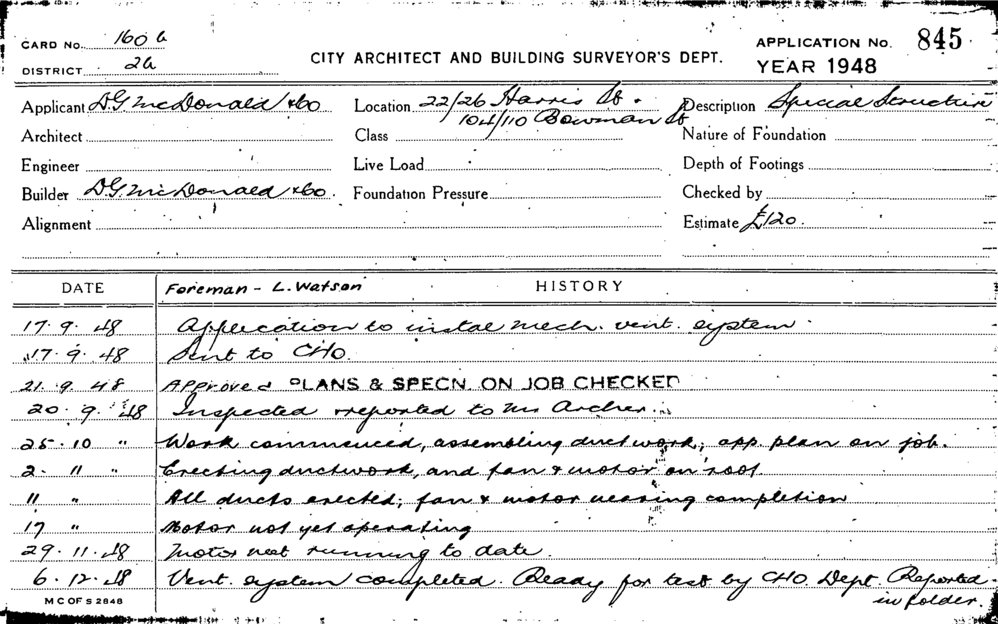 CARD No. 160 b
DISTRICT 2b
CITY ARCHITECT AND BUILDING SURVEYOR'S DEPT.
APPLICATION No. 845
YEAR 1948
Applicant D.G. McDonald & Co
Location 22/26 Harris St.
104/110 Bowman St
Description Special Structure
Architect
Class
Nature of Foundation
Engineer
Live Load
Depth of Footings
Builder D.G. McDonald & Co.
Foundation Pressure
Checked by
Alignment
Estimate £120.
DATE
Foreman - L. Watson
HISTORY
17. 9. 48 Application to instal mech. vent. system.
17. 9. 48 Sent to CHO.
21. 9. 48 Approved PLANS & SPECN. ON JOB CHECKED
20. 9. 48 Inspected & reported to Mr Archer.
25. 10 " Work commenced, assembling duct work; app. plan on job.
2. 11 " Erecting ductwork, and fan & motor on roof
11 " All ducts erected; fan & motor nearing completion
17 " Motor not yet operating
29. 11. 48 Motor not running to date.
6. 12. 48 Vent. system completed. Ready for test by CHO. Dept. Reported
in folder.
M C OF S 2848